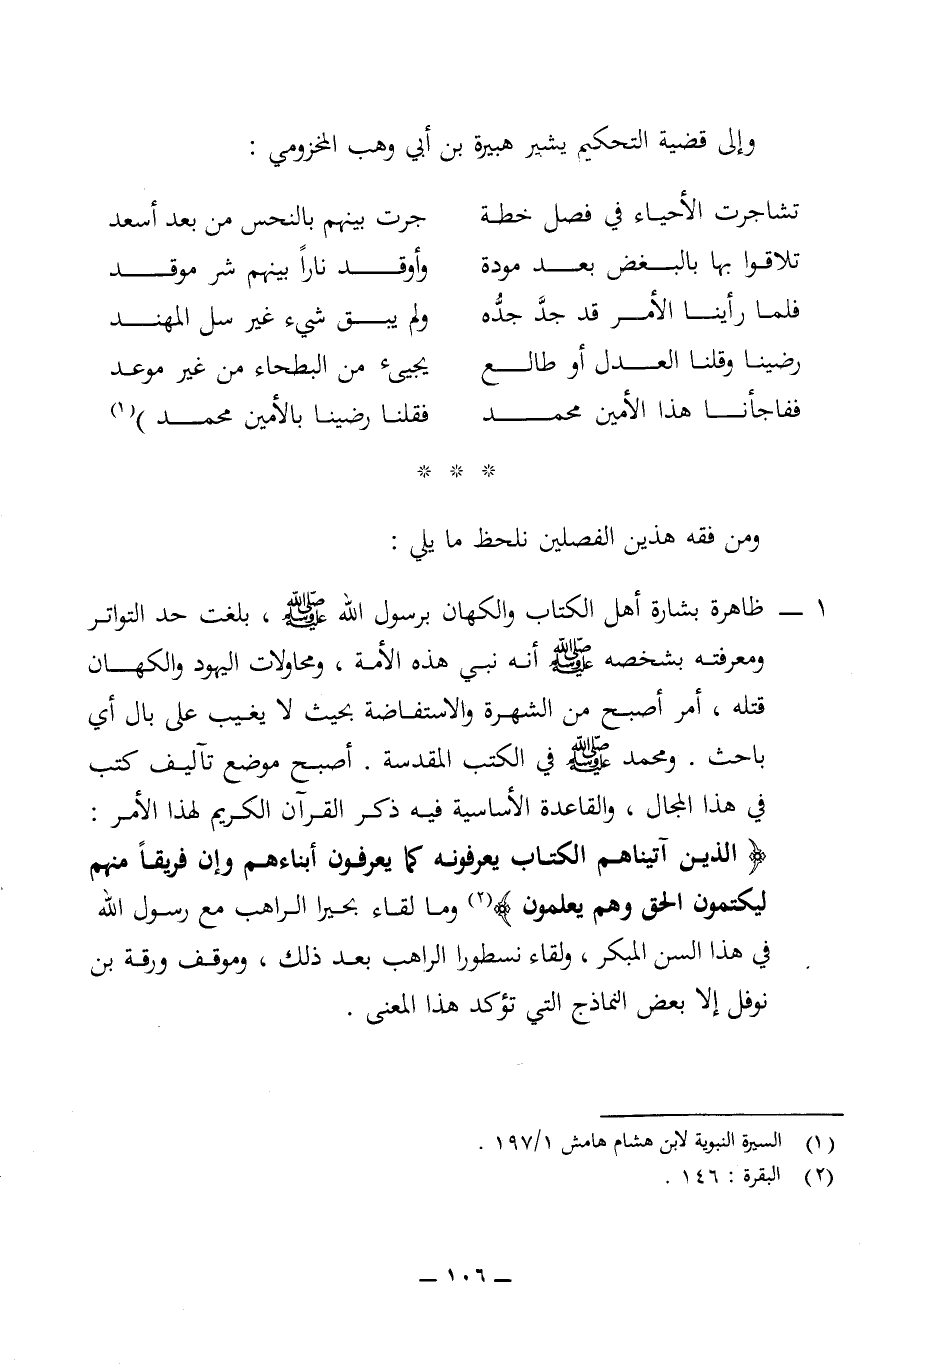 وإلى قضية التحكيم يشير هبيرة بن أبي وهب المخزومي :
تشاجرت الأحياء في فصل خطة جرت بينهم بالنحس من بعد أسعد
تلاقوا بها بالبغض بعد مودة وأوقد ناراً بينهم شر موقد
فلما رأينا الأمر قد جدَّ جدُّه ولم يبق شيء غير سل المهند
رضينا وقلنا العدل أو طالع يجيىء من البطحاء من غير موعد
ففاجأنا هذا الأمين محمد فقلنا رضينا بالأمين محمد )(١)
* * *
ومن فقه هذين الفصلين نلحظ ما يلي :
١ ــ ظاهرة بشارة أهل الكتاب والكهان برسول الله ﷺ ، بلغت حد التواتر
ومعرفته بشخصه ﷺ أنه نبي هذه الأمة ، ومحاولات اليهود والكهان
قتله ، أمر أصبح من الشهرة والاستفاضة بحيث لا يغيب على بال أي
باحث . ومحمد ﷺ في الكتب المقدسة . أصبح موضع تآليف كتب
في هذا المجال ، والقاعدة الأساسية فيه ذكر القرآن الكريم لهذا الأمر :
﴿ الذين آتيناهم الكتاب يعرفونه كما يعرفون أبناءهم وإن فريقاً منهم
ليكتمون الحق وهم يعلمون ﴾(٢) وما لقاء بحيرا الراهب مع رسول الله
في هذا السن المبكر ، ولقاء نسطورا الراهب بعد ذلك ، وموقف ورقة بن
نوفل إلا بعض النماذج التي تؤكد هذا المعنى .
(١) السيرة النبوية لابن هشام هامش ١٩٧/١ .
(٢) البقرة : ١٤٦ .
ــ ١٠٦ ــ